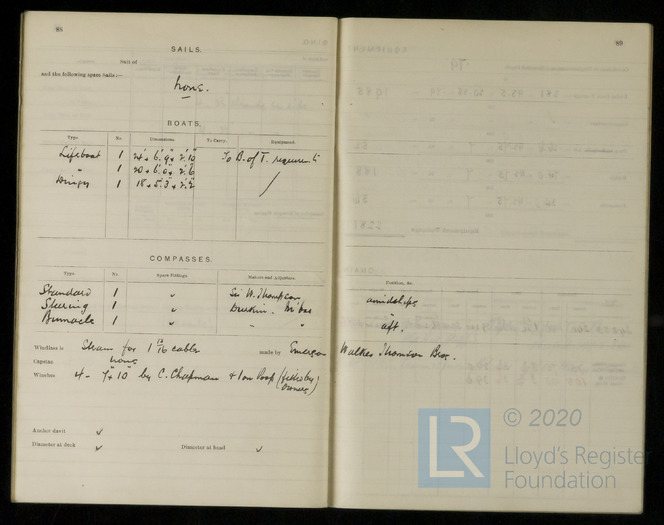 88
SAILS.
Suit of
and the following spare Sails:—
none.
BOATS.
Type No. Dimensions To Carry. Equipment.
Lifeboat 1 24' × 6'.9" × 2'.10" To B. of T. requirements
" 1 20 × 6.0 × 2.6
Dingy 1 18 × 5.3 × 2.2
COMPASSES.
Type No. Spare Fittings. Makers and Adjusters.
Standard 1 ✓ Sir W. Thompson
Steering 1 ✓
Binnacle 1 ✓ " "
Windlass is Steam for 1 13/16 cables made by Emerson
Capstan none
Winches 4 - 7 × 10" by C. Chapman & 1 on Poop (fitted by owners)
Anchor davit ✓
Diameter at deck ✓ Diameter at head ✓
89
Position, &c.
amidships
"
aft.
Walker Thomson Bros.
© 2020
LR
Lloyd's Register
Foundation